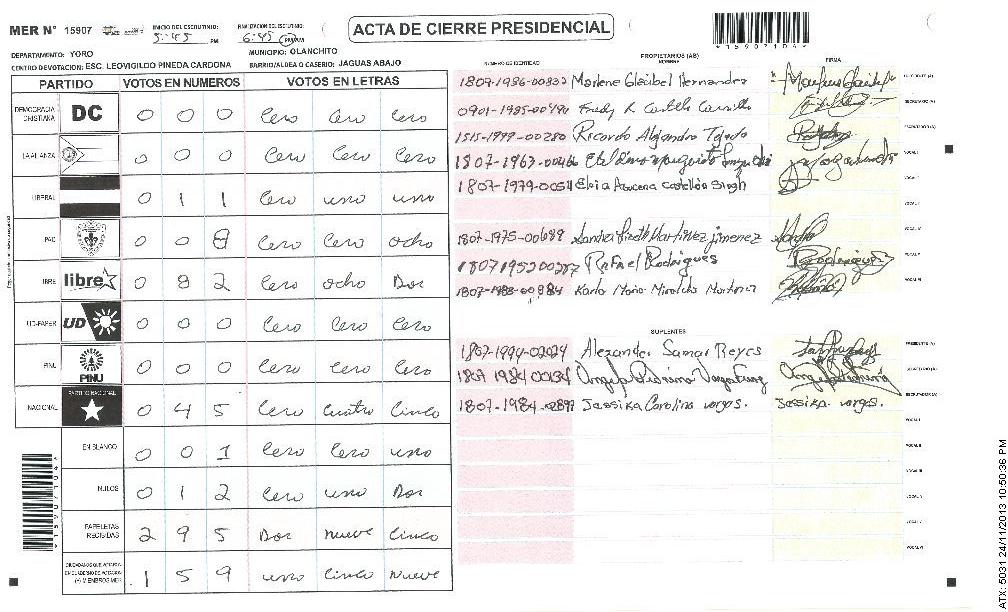 MER N° 15907 INICIO DEL ESCRUTINIO: 5:45 PM FINALIZACION DEL ESCRUTINIO: 6:45 PM/AM
ACTA DE CIERRE PRESIDENCIAL
*15907104*
DEPARTAMENTO: YORO MUNICIPIO: OLANCHITO
CENTRO DEVOTACION: ESC. LEOVIGILDO PINEDA CARDONA BARRIO/ALDEA O CASERIO: JAGUAS ABAJO
PARTIDO VOTOS EN NUMEROS VOTOS EN LETRAS
DEMOCRACIA CRISTIANA DC 0 0 0 Cero Cero Cero
LA ALIANZA 0 0 0 Cero Cero Cero
LIBERAL 0 1 1 Cero uno uno
PAC 0 0 8 Cero Cero ocho
LIBRE libre 0 8 2 Cero ocho Dos
UD-FAPER UD 0 0 0 Cero Cero Cero
PINU PINU 0 0 0 Cero Cero Cero
NACIONAL PARTIDO NACIONAL 0 4 5 Cero Cuatro Cinco
EN BLANCO 0 0 1 Cero Cero uno
NULOS 0 1 2 Cero uno Dos
PAPELETAS RECIBIDAS 2 9 5 Dos nueve Cinco
CIUDADANOS QUE VOTARON EN CUADERNO DE VOTACION (+) MIEMBROS MER 1 5 9 uno Cinco nueve
*15907104*
NUMERO DE IDENTIDAD PROPIETARIOS (AS) NOMBRE FIRMA
Marlene Gleibel Hernandez PRESIDENTE (A)
0901-1985-00490 SECRETARIO (A)
1515-1999-00280 Ricardo Alejandro Tejeda ESCRUTADOR (A)
VOCAL I
Elvia Azucena Castellón Singh VOCAL II
VOCAL III
1807-1975-00688 Sandra Lizeth Martinez jimenez VOCAL IV
Rafael Rodrigues VOCAL V
1807-1988-00984 Karla Maria Miralda Martinez VOCAL VI
SUPLENTES
1807-1994-02024 Alexander Samar Reyes PRESIDENTE (A)
SECRETARIO (A)
Jessika Carolina vargas. Jessika vargas. ESCRUTADOR (A)
VOCAL I
VOCAL II
VOCAL III
VOCAL IV
VOCAL V
VOCAL VI
ATX: 5031 24/11/2013 10:50:36 PM